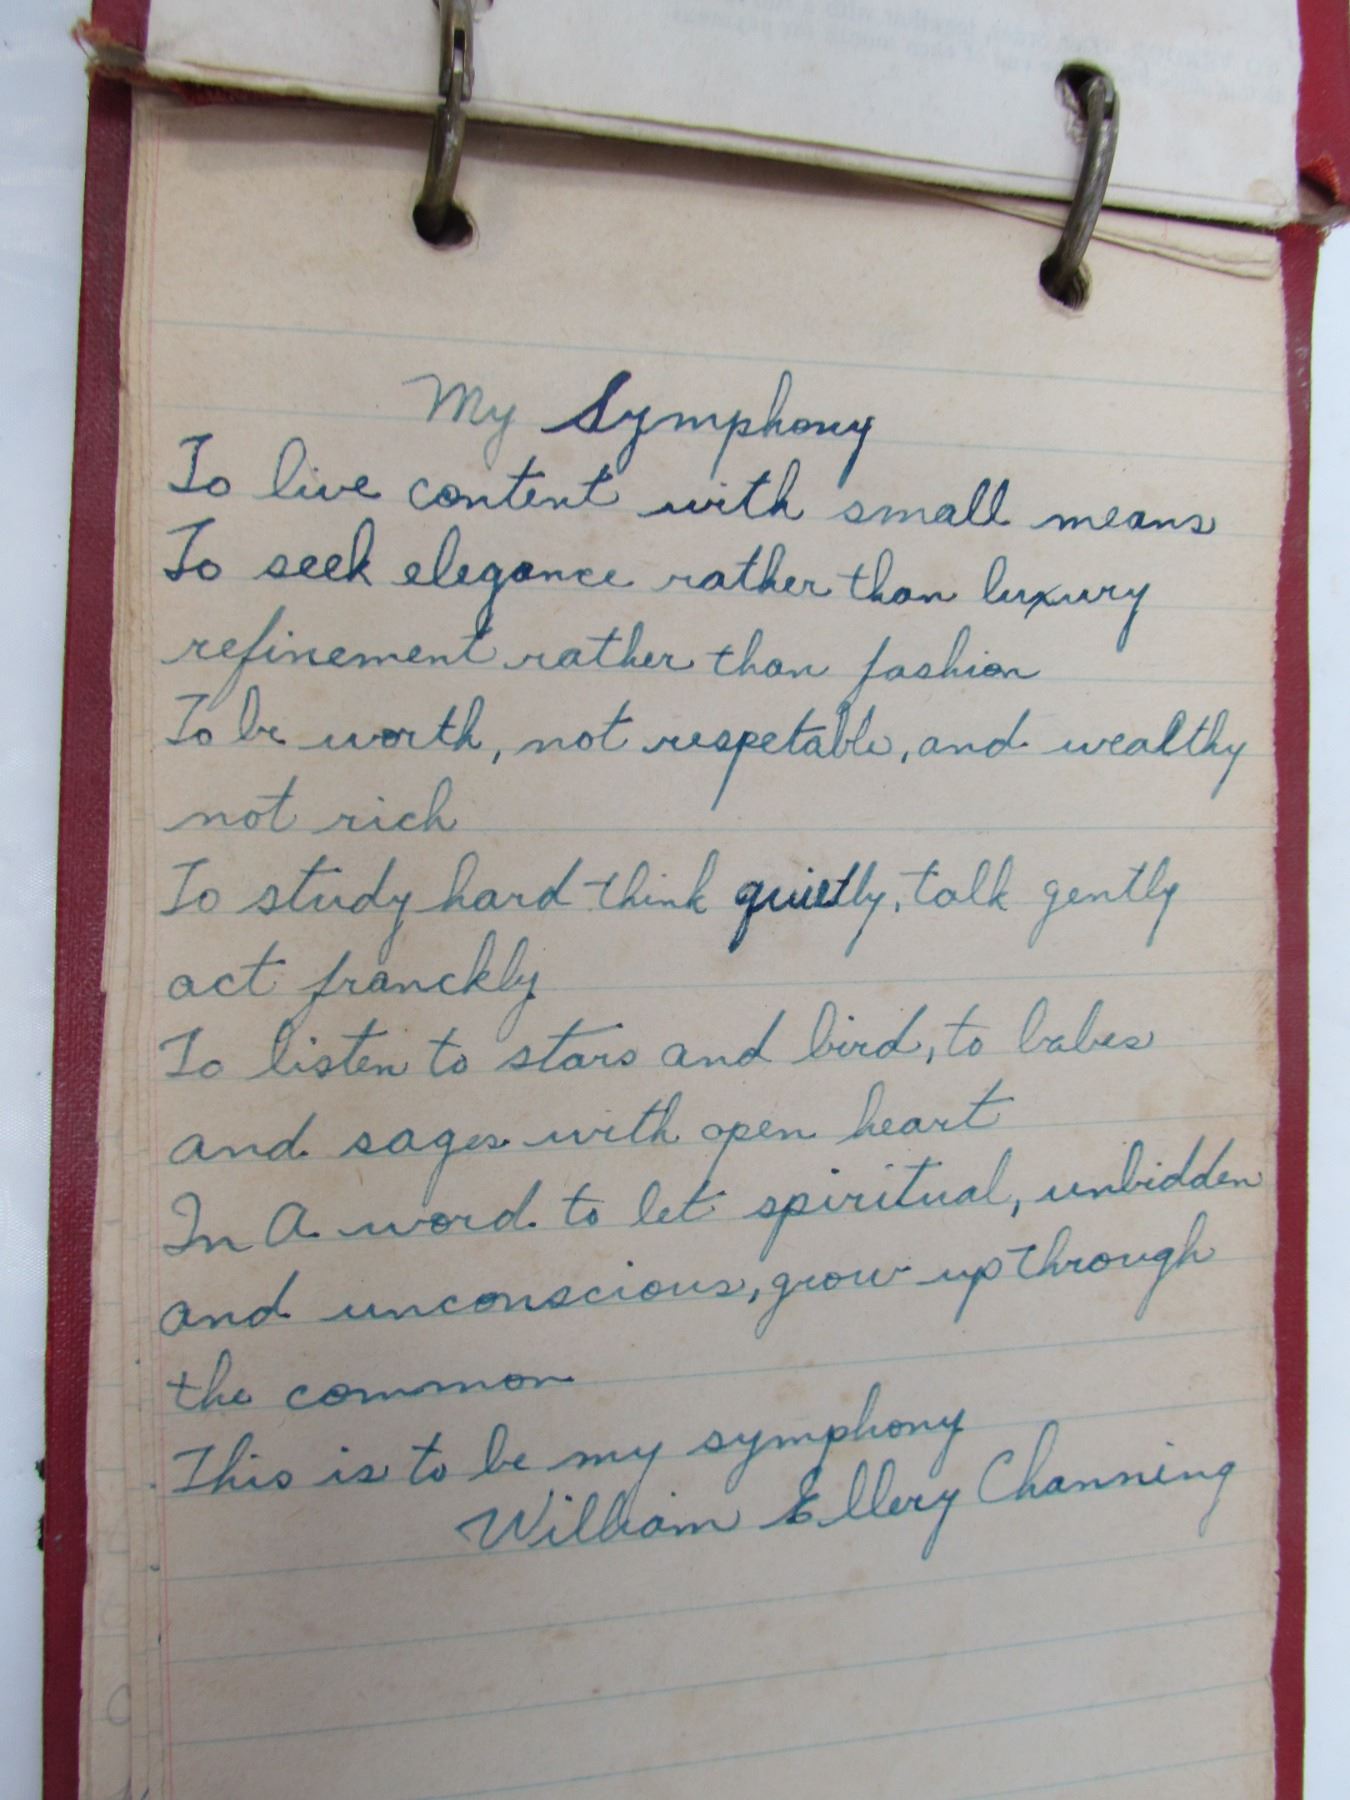 My Symphony
To live content with small means
To seek elegance rather than luxury
refinement rather than fashion
To be worth, not respetable, and wealthy
not rich
To study hard think quietly, talk gently
act franckly
To listen to stars and bird, to babes
and sages with open heart
In A word to let spiritual, unbidden
and unconscious, grow up through
the common
This is to be my symphony
William Ellery Channing